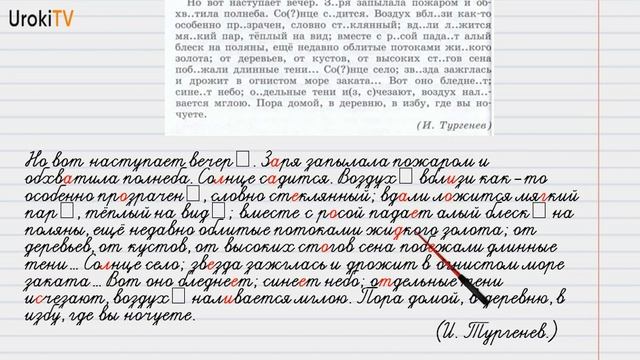 UrokiTV
Но вот наступает вечер. З..ря запылала пожаром и об-
хв..тила полнеба. Со(?)нце с..дится. Воздух вбл..зи как-то
особенно пр..зрачен, словно ст..клянный; вд..ли л..жится
мя..кий пар, тёплый на вид; вместе с р..сой пада..т алый
блеск на поляны, ещё недавно облитые потоками жи..кого
золота; от деревьев, от кустов, от высоких ст..гов сена
поб..жали длинные тени... Со(?)нце село; зв..зда зажглась
и дрожит в огнистом море заката... Вот оно бледне..т;
сине..т небо; о..дельные тени и(з, с)чезают, воздух нал..-
вается мглою. Пора домой, в деревню, в избу, где вы но-
чуете.
(И. Тургенев)
Но вот наступает вечер□. Заря запылала пожаром и
обхватила полнеба. Солнце садится. Воздух□ вблизи как-то
особенно прозрачен□, словно стеклянный; вдали ложится мягкий
пар□, тёплый на вид□; вместе с росой падает алый блеск□ на
поляны, ещё недавно облитые потоками жидкого золота; от
деревьев, от кустов, от высоких стогов сена побежали длинные
тени... Солнце село; звезда зажглась и дрожит в огнистом море
заката... Вот оно бледнеет; синеет небо; отдельные тени
исчезают, воздух□ наливается мглою. Пора домой, в деревню, в
избу, где вы ночуете.
(И. Тургенев.)